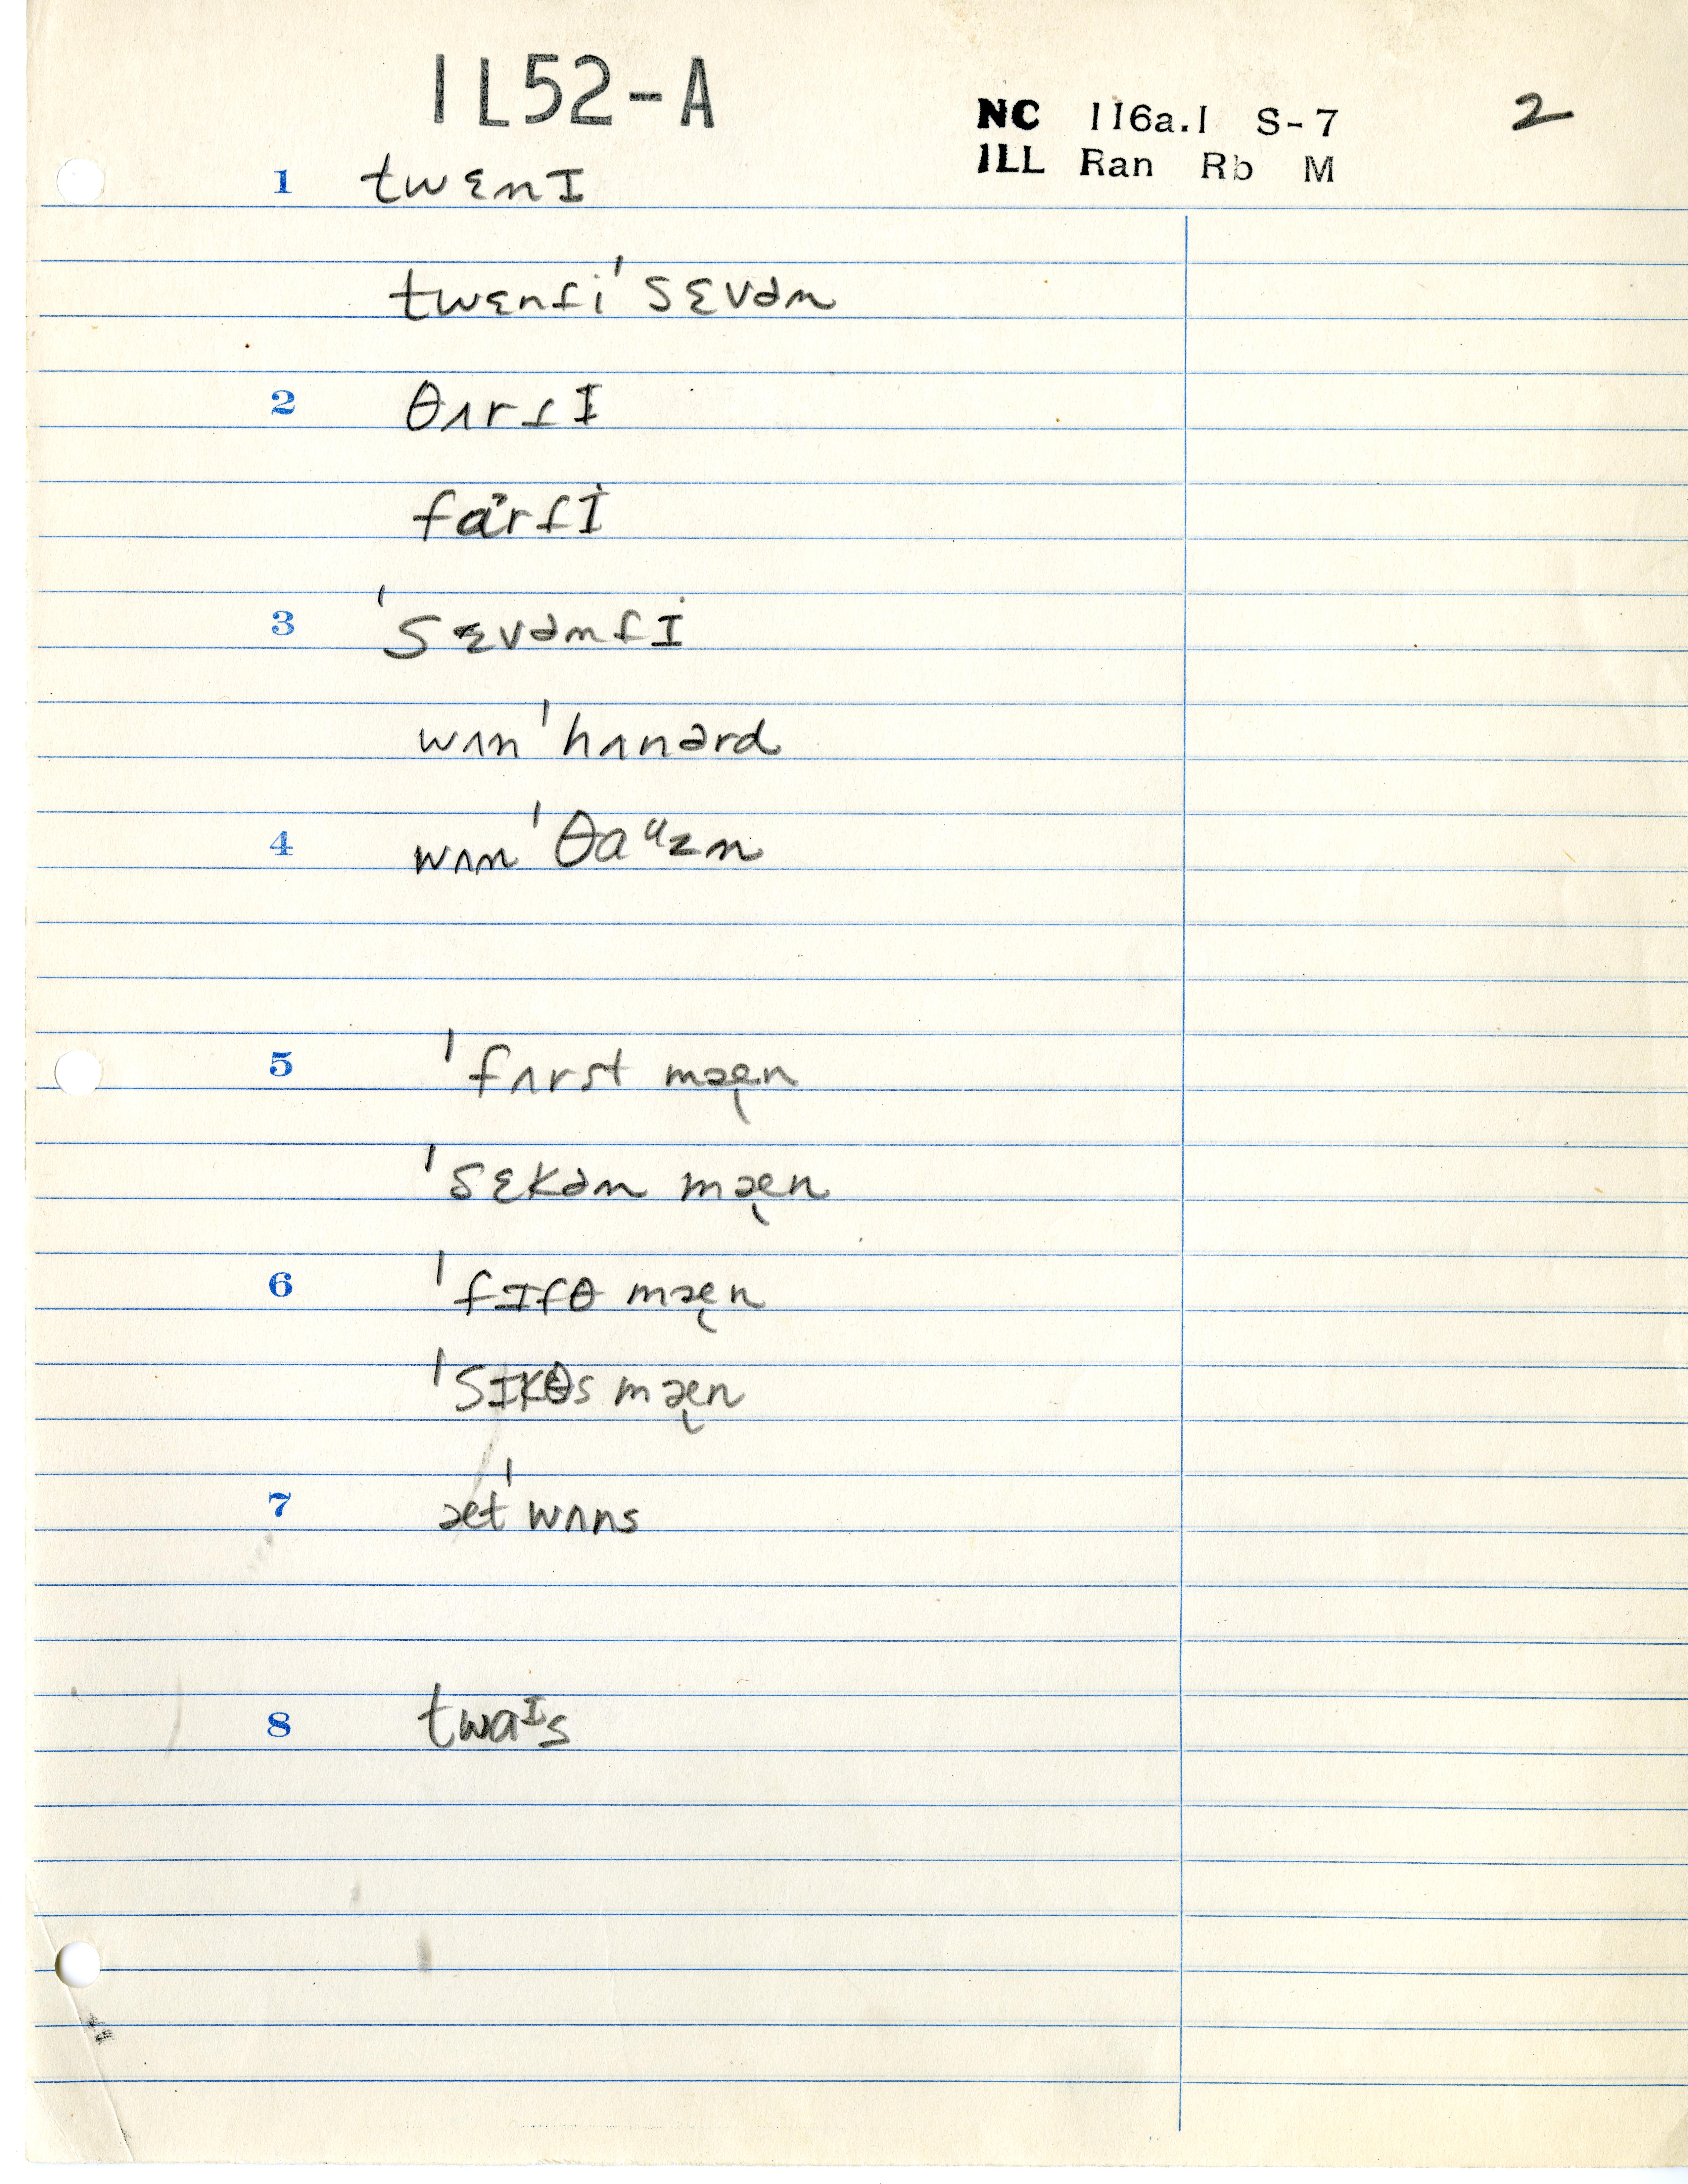 1L52-A
NC 116a.1 S-7 2
ILL Ran Rb M
1 twɛnɪ
twɛnɾi ˈsɛvən
2 θʌrɾɪ
fɑ̉rɾɪ̇
3 ˈsɛvəmɾɪ̇
wʌn ˈhʌnərd
4 wʌn ˈθaᵘzn
5 ˈfʌrst mæ̨n
ˈsɛkən mæ̨n
6 ˈfɪfθ mæ̨n
ˈsɪkθs mæ̨n
7 æt ˈwʌns
8 twaᶦs